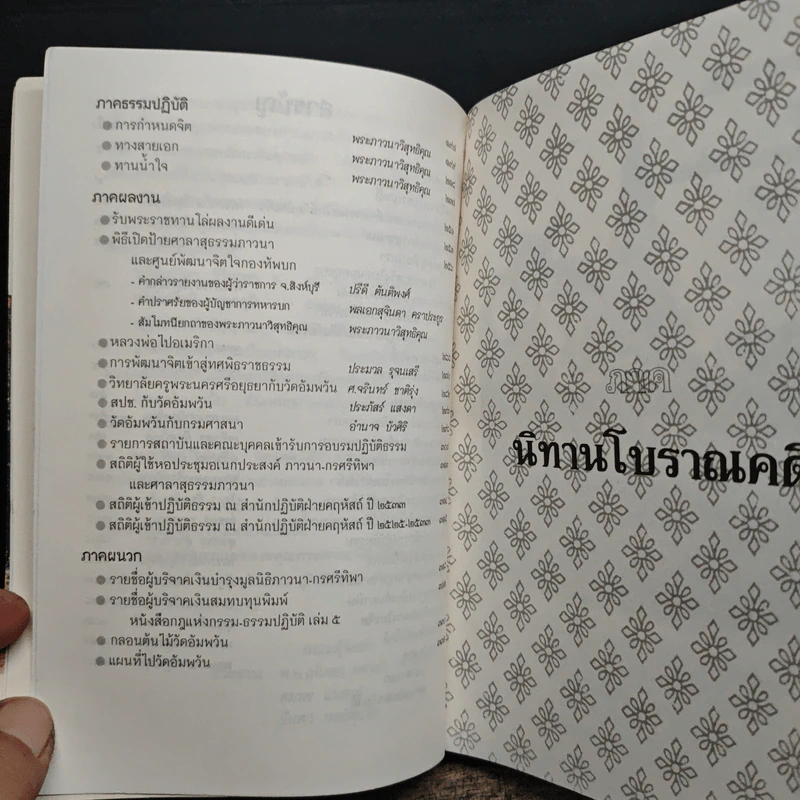 ภาคธรรมปฏิบัติ
การกำหนดจิต พระภาวนาวิสุทธิคุณ
ทางสายเอก พระภาวนาวิสุทธิคุณ
ทานน้ำใจ พระภาวนาวิสุทธิคุณ
ภาคผลงาน
รับพระราชทานโล่ผลงานดีเด่น
พิธีเปิดป้ายศาลาสุธรรมภาวนา
และศูนย์พัฒนาจิตใจกองทัพบก
- คำกล่าวรายงานของผู้ว่าราชการ จ.สิงห์บุรี ปรีดี ตันติพงศ์
- คำปราศรัยของผู้บัญชาการทหารบก พลเอกสุจินดา คราประยูร
- สัมโมทนียกถาของพระภาวนาวิสุทธิคุณ พระภาวนาวิสุทธิคุณ
หลวงพ่อไปอเมริกา
การพัฒนาจิตเข้าสู่ทศพิธราชธรรม ประมวล รุจนเสรี
วิทยาลัยครูพระนครศรีอยุธยากับวัดอัมพวัน ศ.จรินทร์ ชาติรุ่ง
สปช. กับวัดอัมพวัน ประภัสร์ แสงดา
วัดอัมพวันกับกรมศาสนา อำนาจ บัวศิริ
รายการสถาบันและคณะบุคคลเข้ารับการอบรมปฏิบัติธรรม
สถิติผู้ใช้หอประชุมอเนกประสงค์ ภาวนา-กรศรีทิพา
และศาลาสุธรรมภาวนา
สถิติผู้เข้าปฏิบัติธรรม ณ สำนักปฏิบัติฝ่ายคฤหัสถ์ ปี ๒๕๓๓
สถิติผู้เข้าปฏิบัติธรรม ณ สำนักปฏิบัติฝ่ายคฤหัสถ์ ปี ๒๕๒๕-๒๕๓๓
ภาคผนวก
รายชื่อผู้บริจาคเงินบำรุงมูลนิธิภาวนา-กรศรีทิพา
รายชื่อผู้บริจาคเงินสมทบทุนพิมพ์
หนังสือกฎแห่งกรรม-ธรรมปฏิบัติ เล่ม ๕
กลอนต้นไม้วัดอัมพวัน
แผนที่ไปวัดอัมพวัน
ภาค
นิทานโบราณคดี